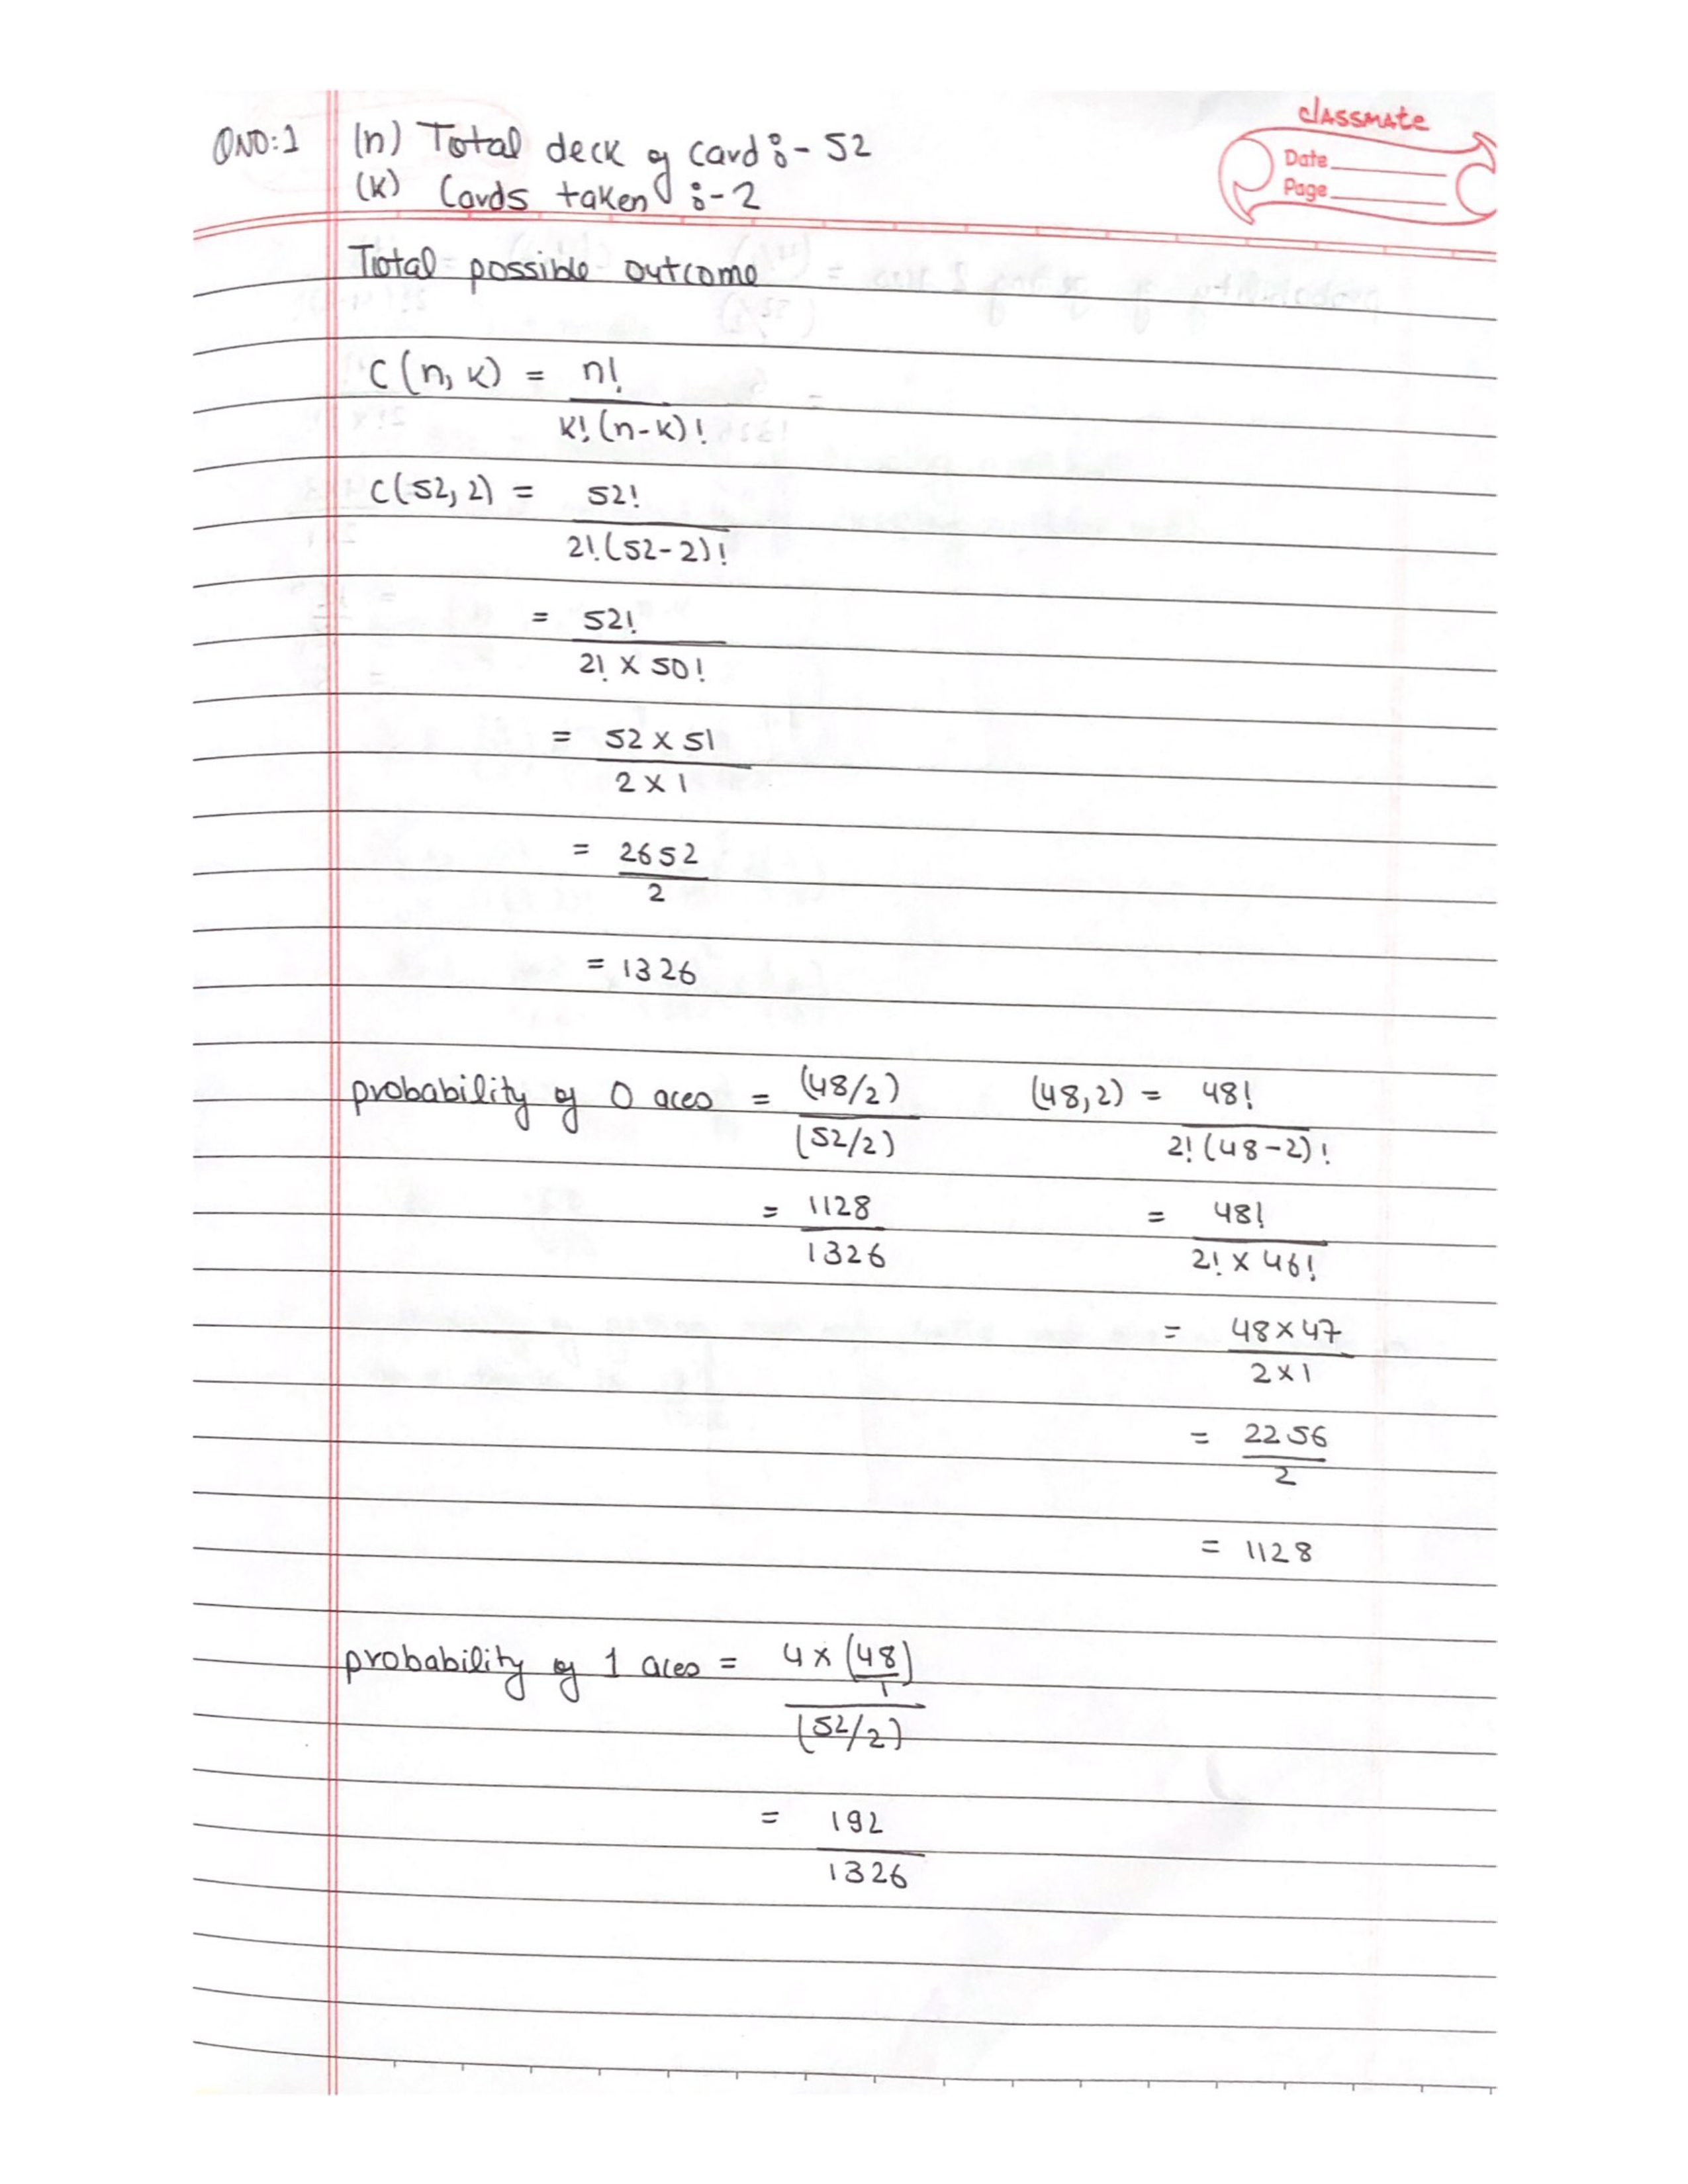 classmate
Date
Page
QNO:1 (n) Total deck of card :- 52
(k) Cards taken :- 2
Total possible outcome
C(n,k) = n!
k!(n-k)!
C(52,2) = 52!
2!(52-2)!
= 52!
2! x 50!
= 52 x 51
2 x 1
= 2652
2
= 1326
probability of 0 aces = (48/2) (48,2) = 48!
(52/2) 2!(48-2)!
= 1128 = 48!
1326 2! x 46!
= 48x47
2x1
= 2256
2
= 1128
probability of 1 aces = 4 x (48
1)
(52/2)
= 192
1326